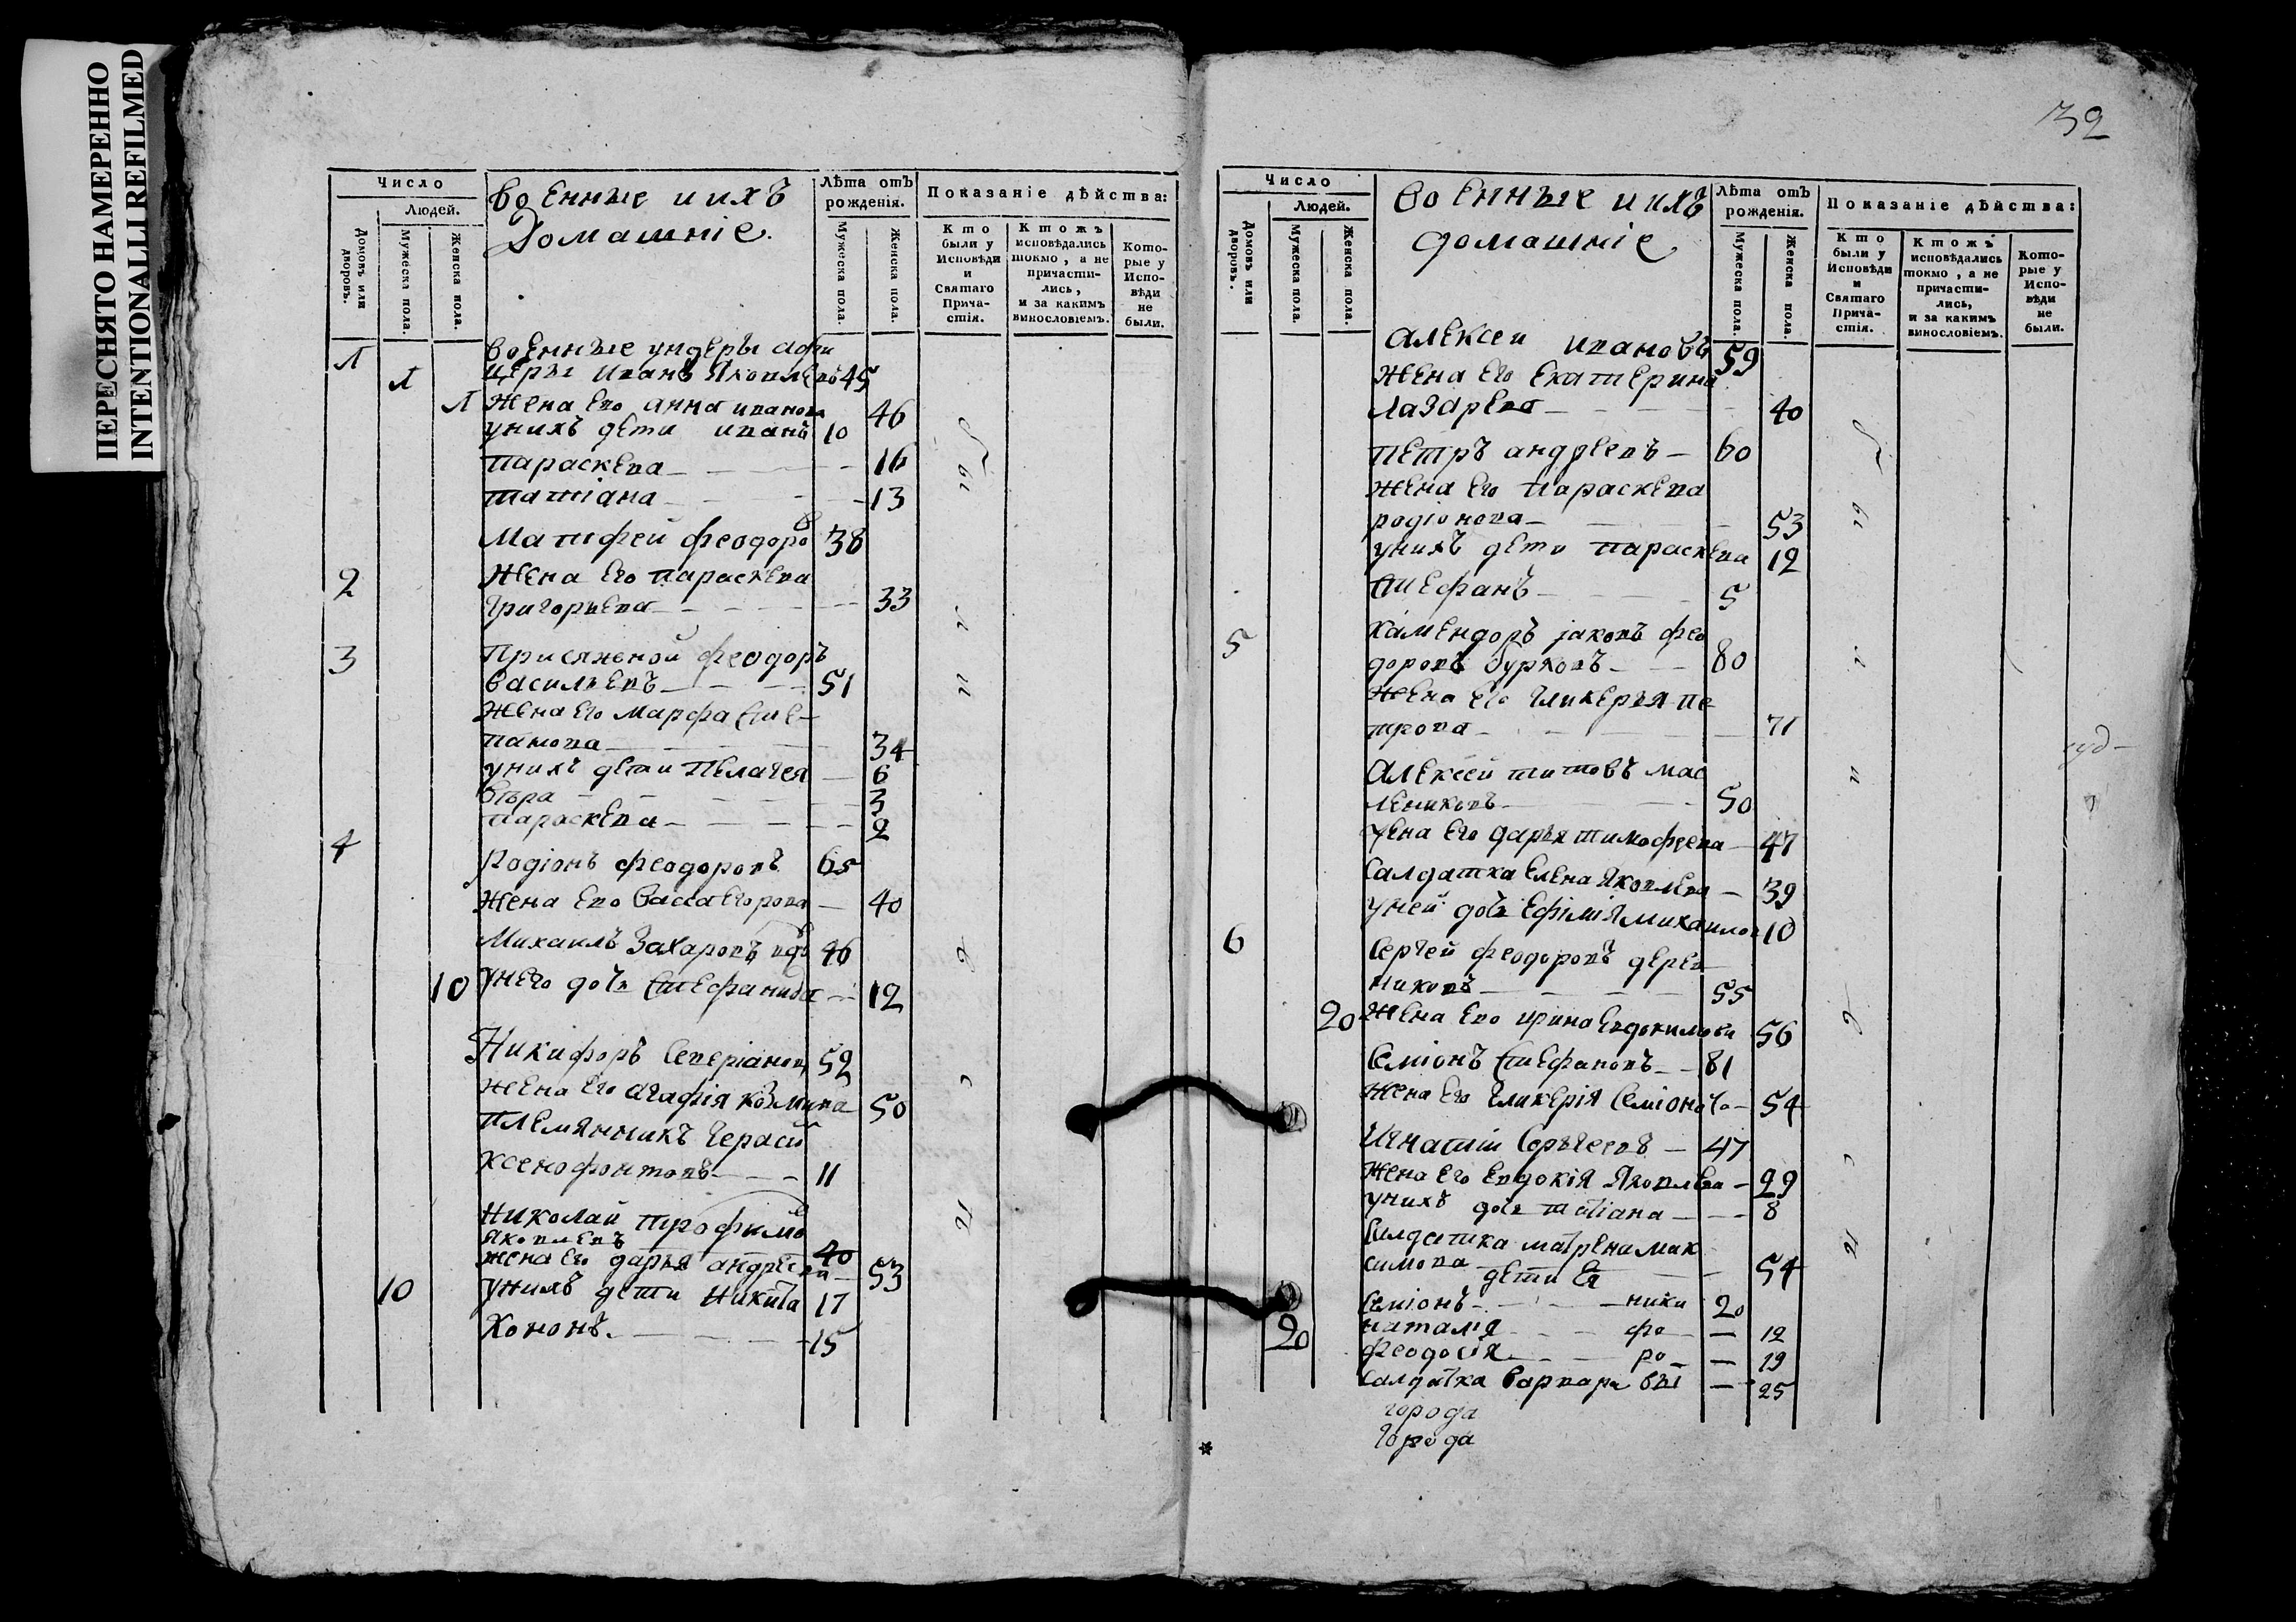 ПЕРЕСНЯТО НАМЕРЕННО
INTENTIONALLI REFILMED
32
Число
Людей.
Домовъ или дворовъ.
Мужеска пола.
Женска пола.
военные и ихъ
Домашніе.
Лѣта отъ рожденія.
Мужеска пола.
Женска пола.
Показаніе дѣйства:
Кто были у Исповѣди и Святаго Прича-стія.
Ктожъ исповѣдались токмо, а не причасти-лись, и за какимъ винословіемъ.
Кото-рые у Испо-вѣди не были.
военные ундеры афи
церы иванъ Яковлевъ 45
Жена его анна иванова 46
унихъ дети иванъ 10
параскева 16
татіана 13
Матфей феодоро 38
2 Жена Его параскева
григорьева 33
3 Присяжной феодоръ
васильевъ 51
жена Его марфа сте-
панова 34
унихъ дети пелагея 6
вѣра 3
параскева 2
4 Родіонъ феодоровъ 65
жена Его Васса Егорова 40
Михаилъ Захаровъ вдо 46
10 унего дочь стефанида 12
Никифоръ Северіанов 52
жена Его агафія козмина 50
племянникъ герасі
ксенофонтовъ 11
николай трофимо
яковлевъ 40
жена Его дарья андреева 53
10 унихъ дети никита 17
Кононъ 15
Число
Людей.
Домовъ или дворовъ.
Мужеска пола.
Женска пола.
военные и ихъ
домашніе
Лѣта отъ рожденія.
Мужеска пола.
Женска пола.
Показаніе дѣйства:
Кто были у Исповѣди и Святаго Прича-стія.
Ктожъ исповѣдались токмо, а не причасти-лись, и за какимъ винословіемъ.
Кото-рые у Испо-вѣди не были.
алексеи ивановъ 59
жена Его Екатерина
лазарева 40
петръ андреевъ 60
жена Его параскева
родіонова 53
унихъ дети параскева 12
стефанъ 5
5 камендоръ іаковъ фео
доровъ бурковъ 80
жена Его гликерья пе
трова 71
алексей титовъ мас
лениковъ 50
жена Его дарья тимофеева 47
салдатка елена яковлева 39
уней дочь Ефімія михаилов 10
6 Сергей феодоровъ дерев
никовъ 55
20 жена Его ирина Евдокимова 56
семіонъ стефановъ 81
жена Его гликерія семіонова 54
игнатіи Сергеевъ 47
жена Его Евдокія Яковлева 29
унихъ дочь татіана 8
Салдатка матрена мак
симова 54
дети Ея
семіонъ ники 20
20 наталія фо 12
феодосія ро 19
салдатка варвара вы 25
города
города
*